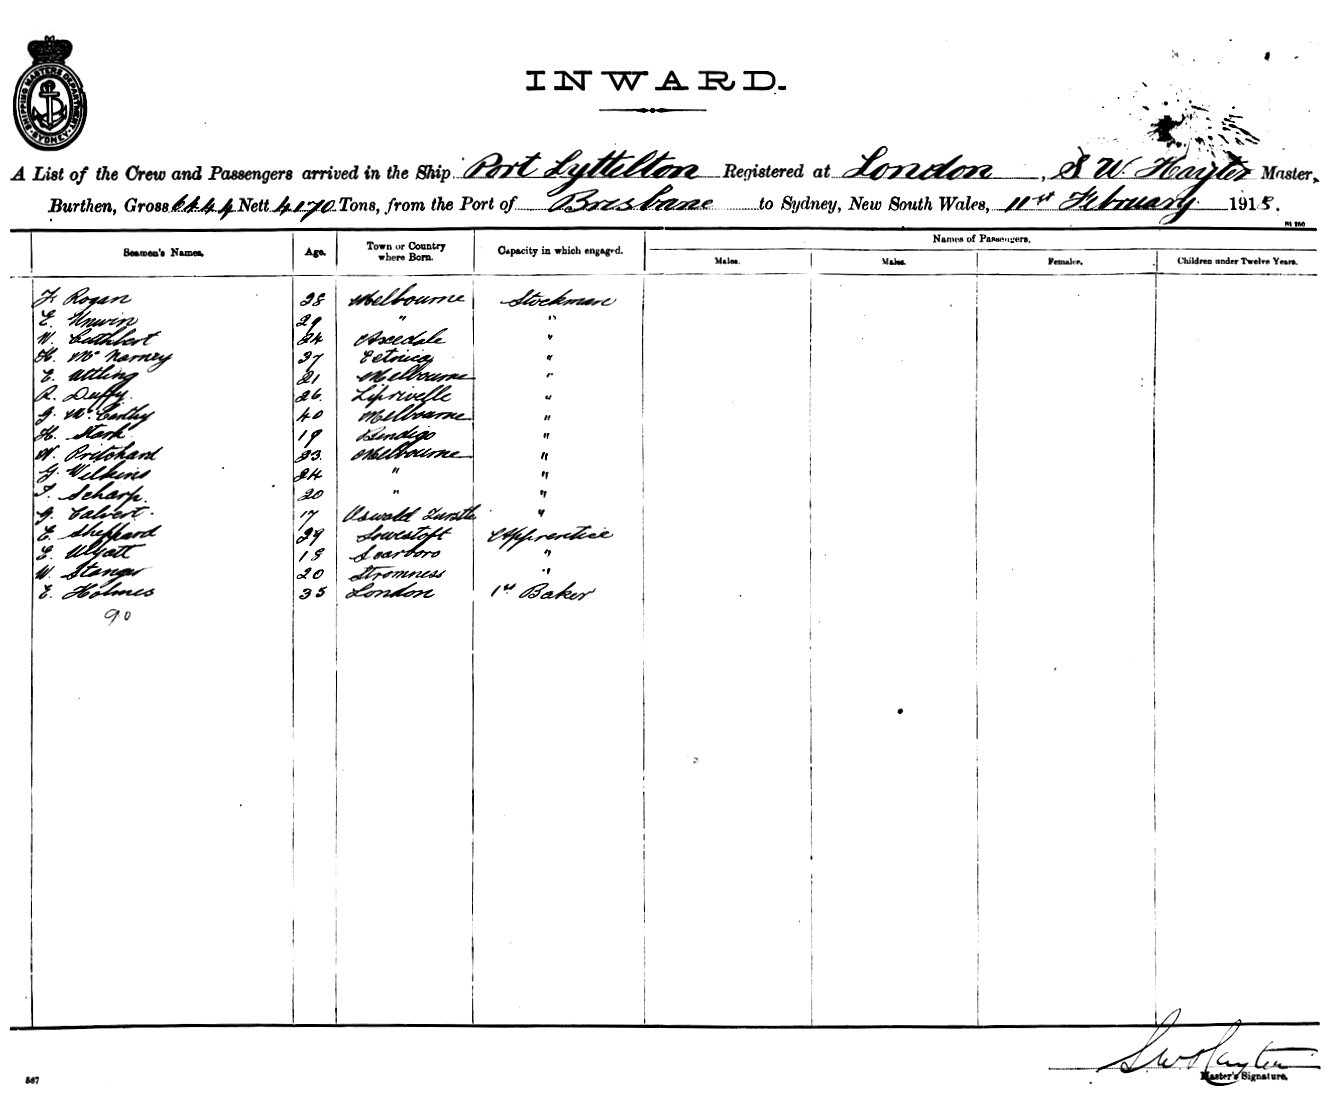 SHIPPING MASTERS DEPARTMENT SYDNEY
INWARD.
A List of the Crew and Passengers arrived in the Ship Port Lyttelton Registered at London, S W. Hayter Master,
Burthen, Gross 6444 Nett 4170 Tons, from the Port of Brisbane to Sydney, New South Wales, 11st February 1918.
Seamen's Names. Age. Town or Country where Born. Capacity in which engaged. Names of Passengers.
Males. Males. Females. Children under Twelve Years.
J. Rogan 28 Melbourne Stockman
E. Unwin 29 " "
W. Cuthbert 24 Axedale "
H. McNarney 37 "
E. Uttling 21 Melbourne "
R. Duffy. 26. "
J. McCarthy 40 Melbourne "
H. Stark 19 Bendigo "
W. Pritchard 23 Melbourne "
G. Wilkins 24 " "
T. Scharp. 20 " "
G. Calvert. 17 Oswald "
E. Sheppard 29 Lowestoft Apprentice
E. Wyatt 18 Scarboro "
W. Stanger 20 Stromness "
E. Holmes 35 London 1st Baker
90
S W Hayter
Master's Signature.
587